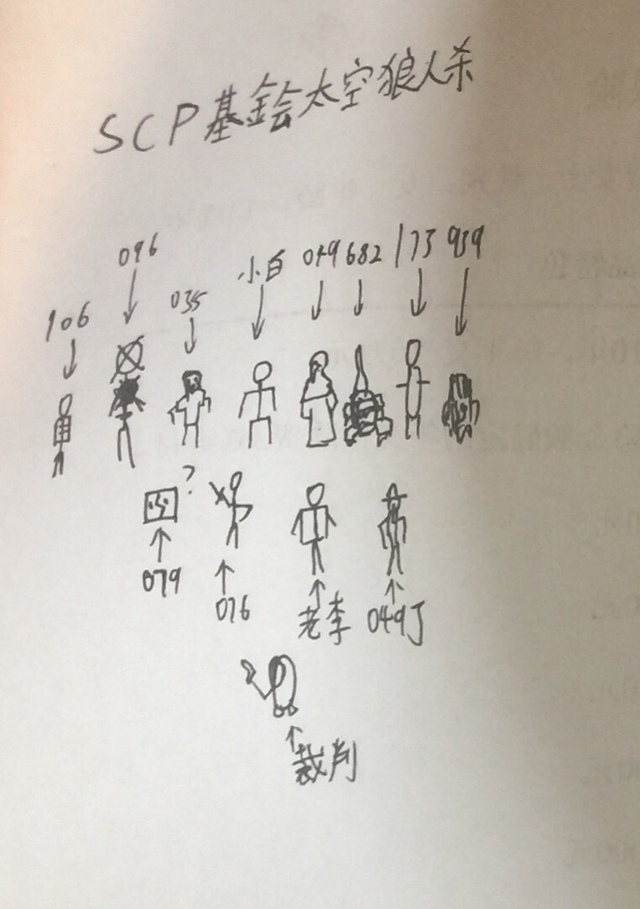 SCP基金会太空狼人杀
106 096 035 小白 049 682 173 939
?
079 076 老李 049J
裁判